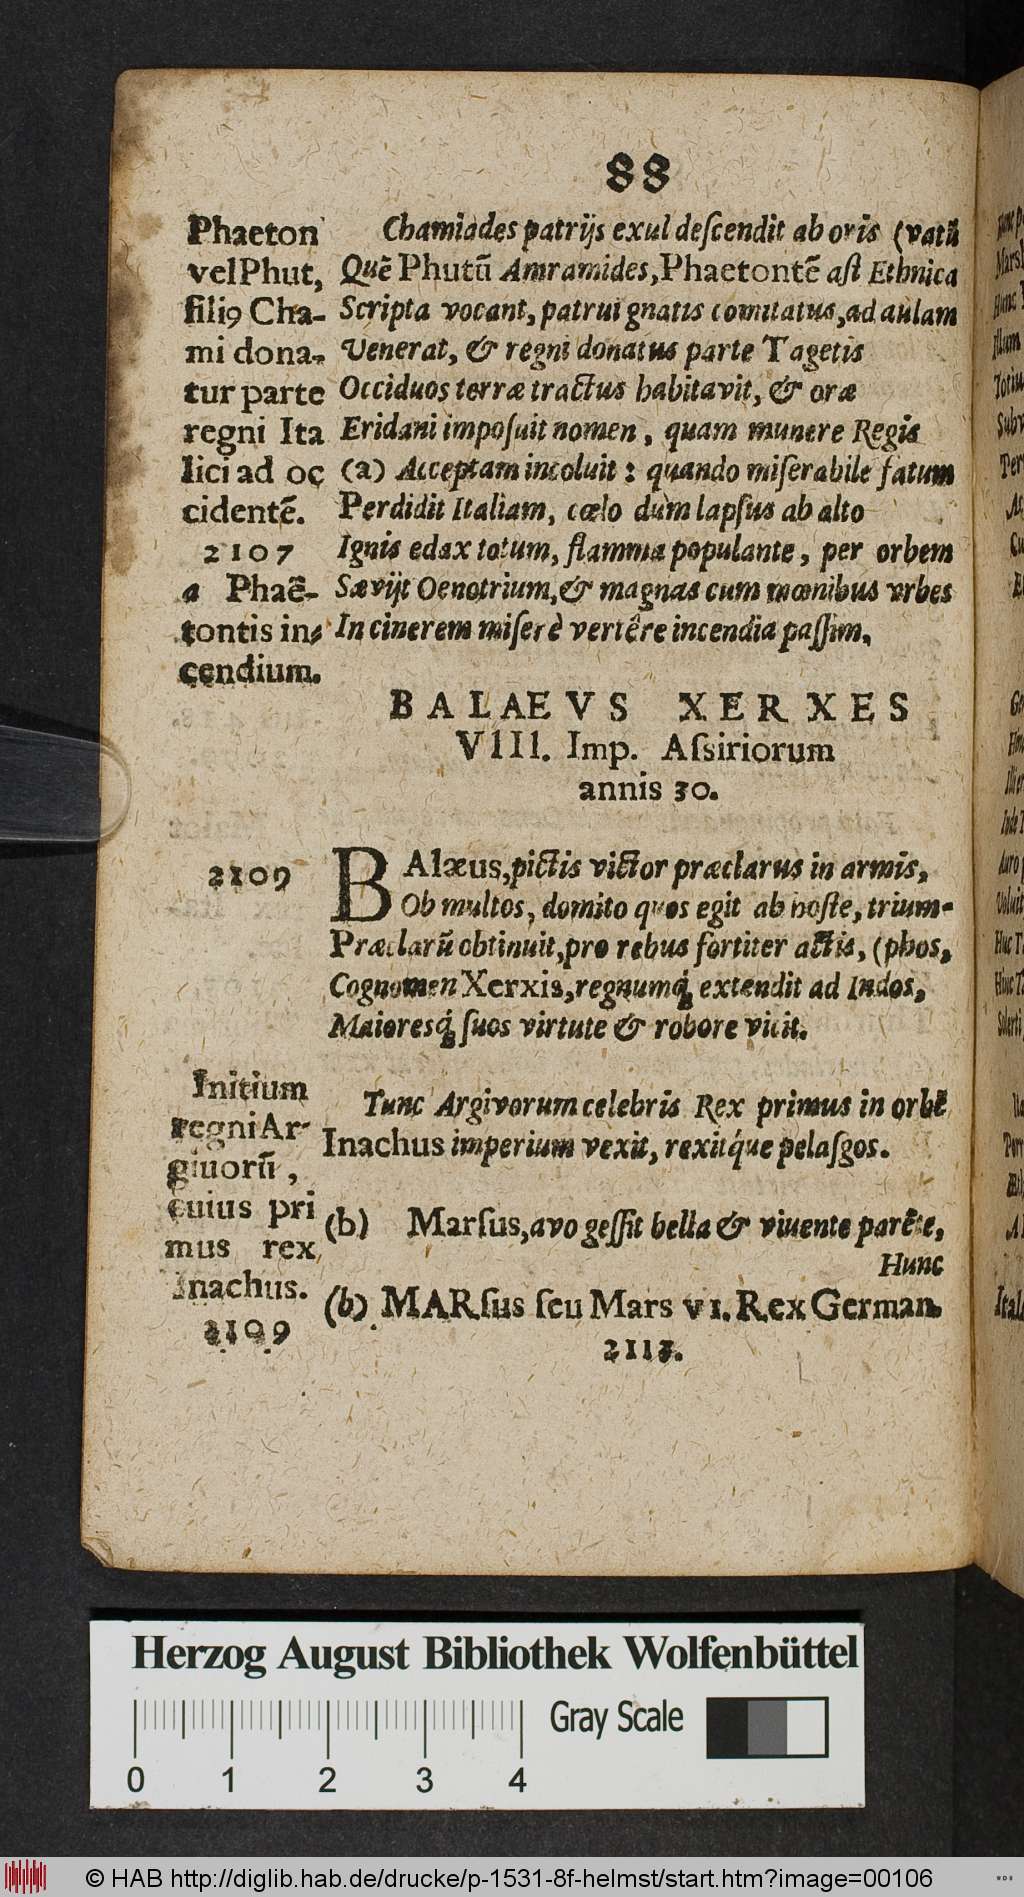 88
Phaeton
vel Phut,
filiꝰ Cha-
mi dona-
tur parte
regni Ita
lici ad oc
cidentē.
2107
a Phaë-
tontis in-
cendium.
Chamiades patrijs exul deſcendit ab oris (vatū
Quē Phutū Amramides, Phaetontē aſt Ethnica
Scripta vocant, patrui gnatis comitatus, ad aulam
Venerat, & regni donatus parte Tagetis
Occiduos terræ tractus habitavit, & oræ
Eridani impoſuit nomen, quam munere Regis
(a) Acceptam incoluit: quando miſerabile fatum
Perdidit Italiam, cœlo dum lapſus ab alto
Ignis edax totum, flamma populante, per orbem
Sævijt Oenotrium, & magnas cum mœnibus vrbes
In cinerem miſerè vertêre incendia paſſim,
BALAEVS XERXES
VIII. Imp. Aſsiriorum
annis 30.
2109
BAlæus, pictis victor præclarus in armis,
Ob multos, domito quos egit ab hoſte, trium-
Præclarū obtinuit, pro rebus fortiter actis, (phos,
Cognomen Xerxis, regnumq́ꝫ extendit ad Indos,
Maioresq́ꝫ ſuos virtute & robore vicit.
Initium
regni Ar-
giuorū,
cuius pri
mus rex
Inachus.
2109
Tunc Argivorum celebris Rex primus in orbē
Inachus imperium vexit, rexitq́ue pelaſgos.
(b) Marſus, avo geſſit bella & viuente parēte,
Hunc
(b) MARſus ſeu Mars VI. Rex German.
2113.
Herzog August Bibliothek Wolfenbüttel
0 1 2 3 4
Gray Scale
© HAB http://diglib.hab.de/drucke/p-1531-8f-helmst/start.htm?image=00106